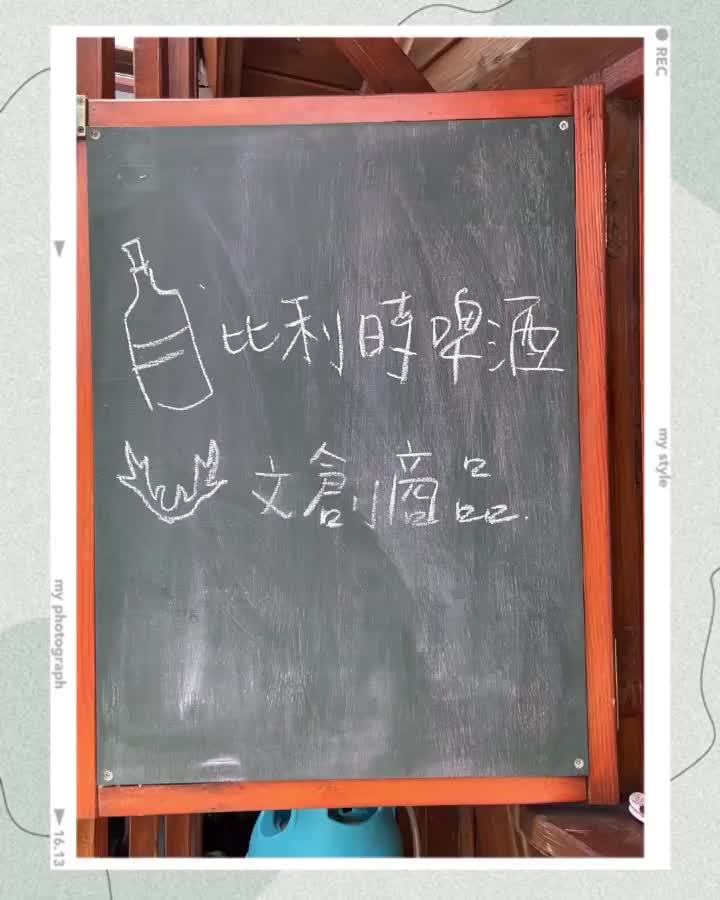 比利時啤酒
文創商品.
REC
my style
my photograph
16.13